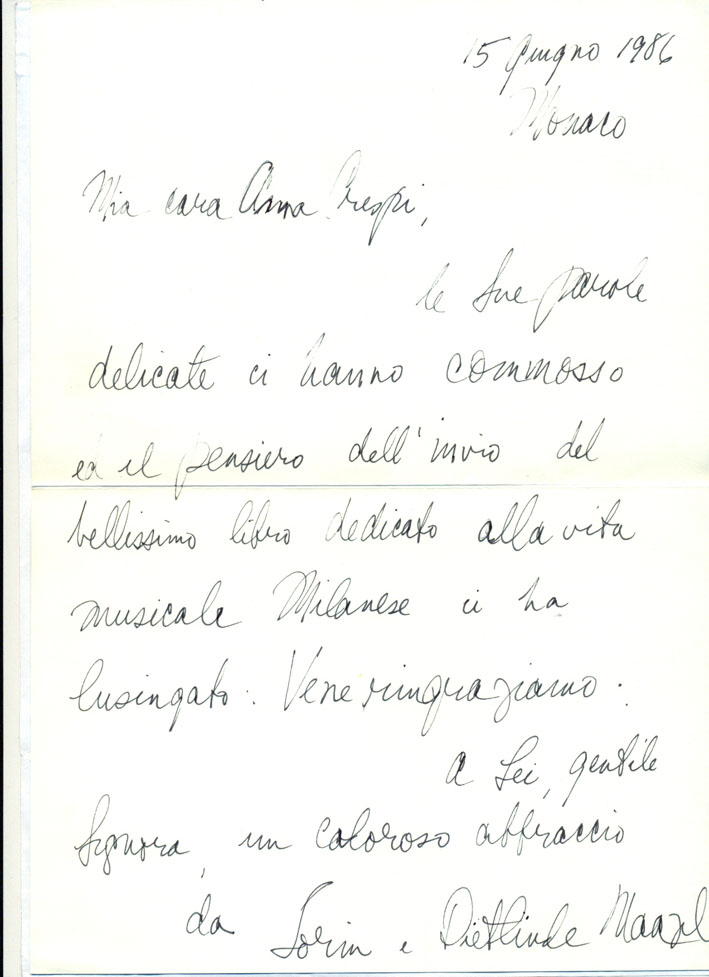 15 Giugno 1986
Monaco
Mia cara Anna Crespi,
le Sue parole
delicate ci hanno commosso
ed il pensiero dell'invio del
bellissimo libro dedicato alla vita
musicale Milanese ci ha
lusingato. Ve ne ringraziamo.
A Lei, gentile
Signora, un caloroso abbraccio
da Lorin e Dietlinde Maazel